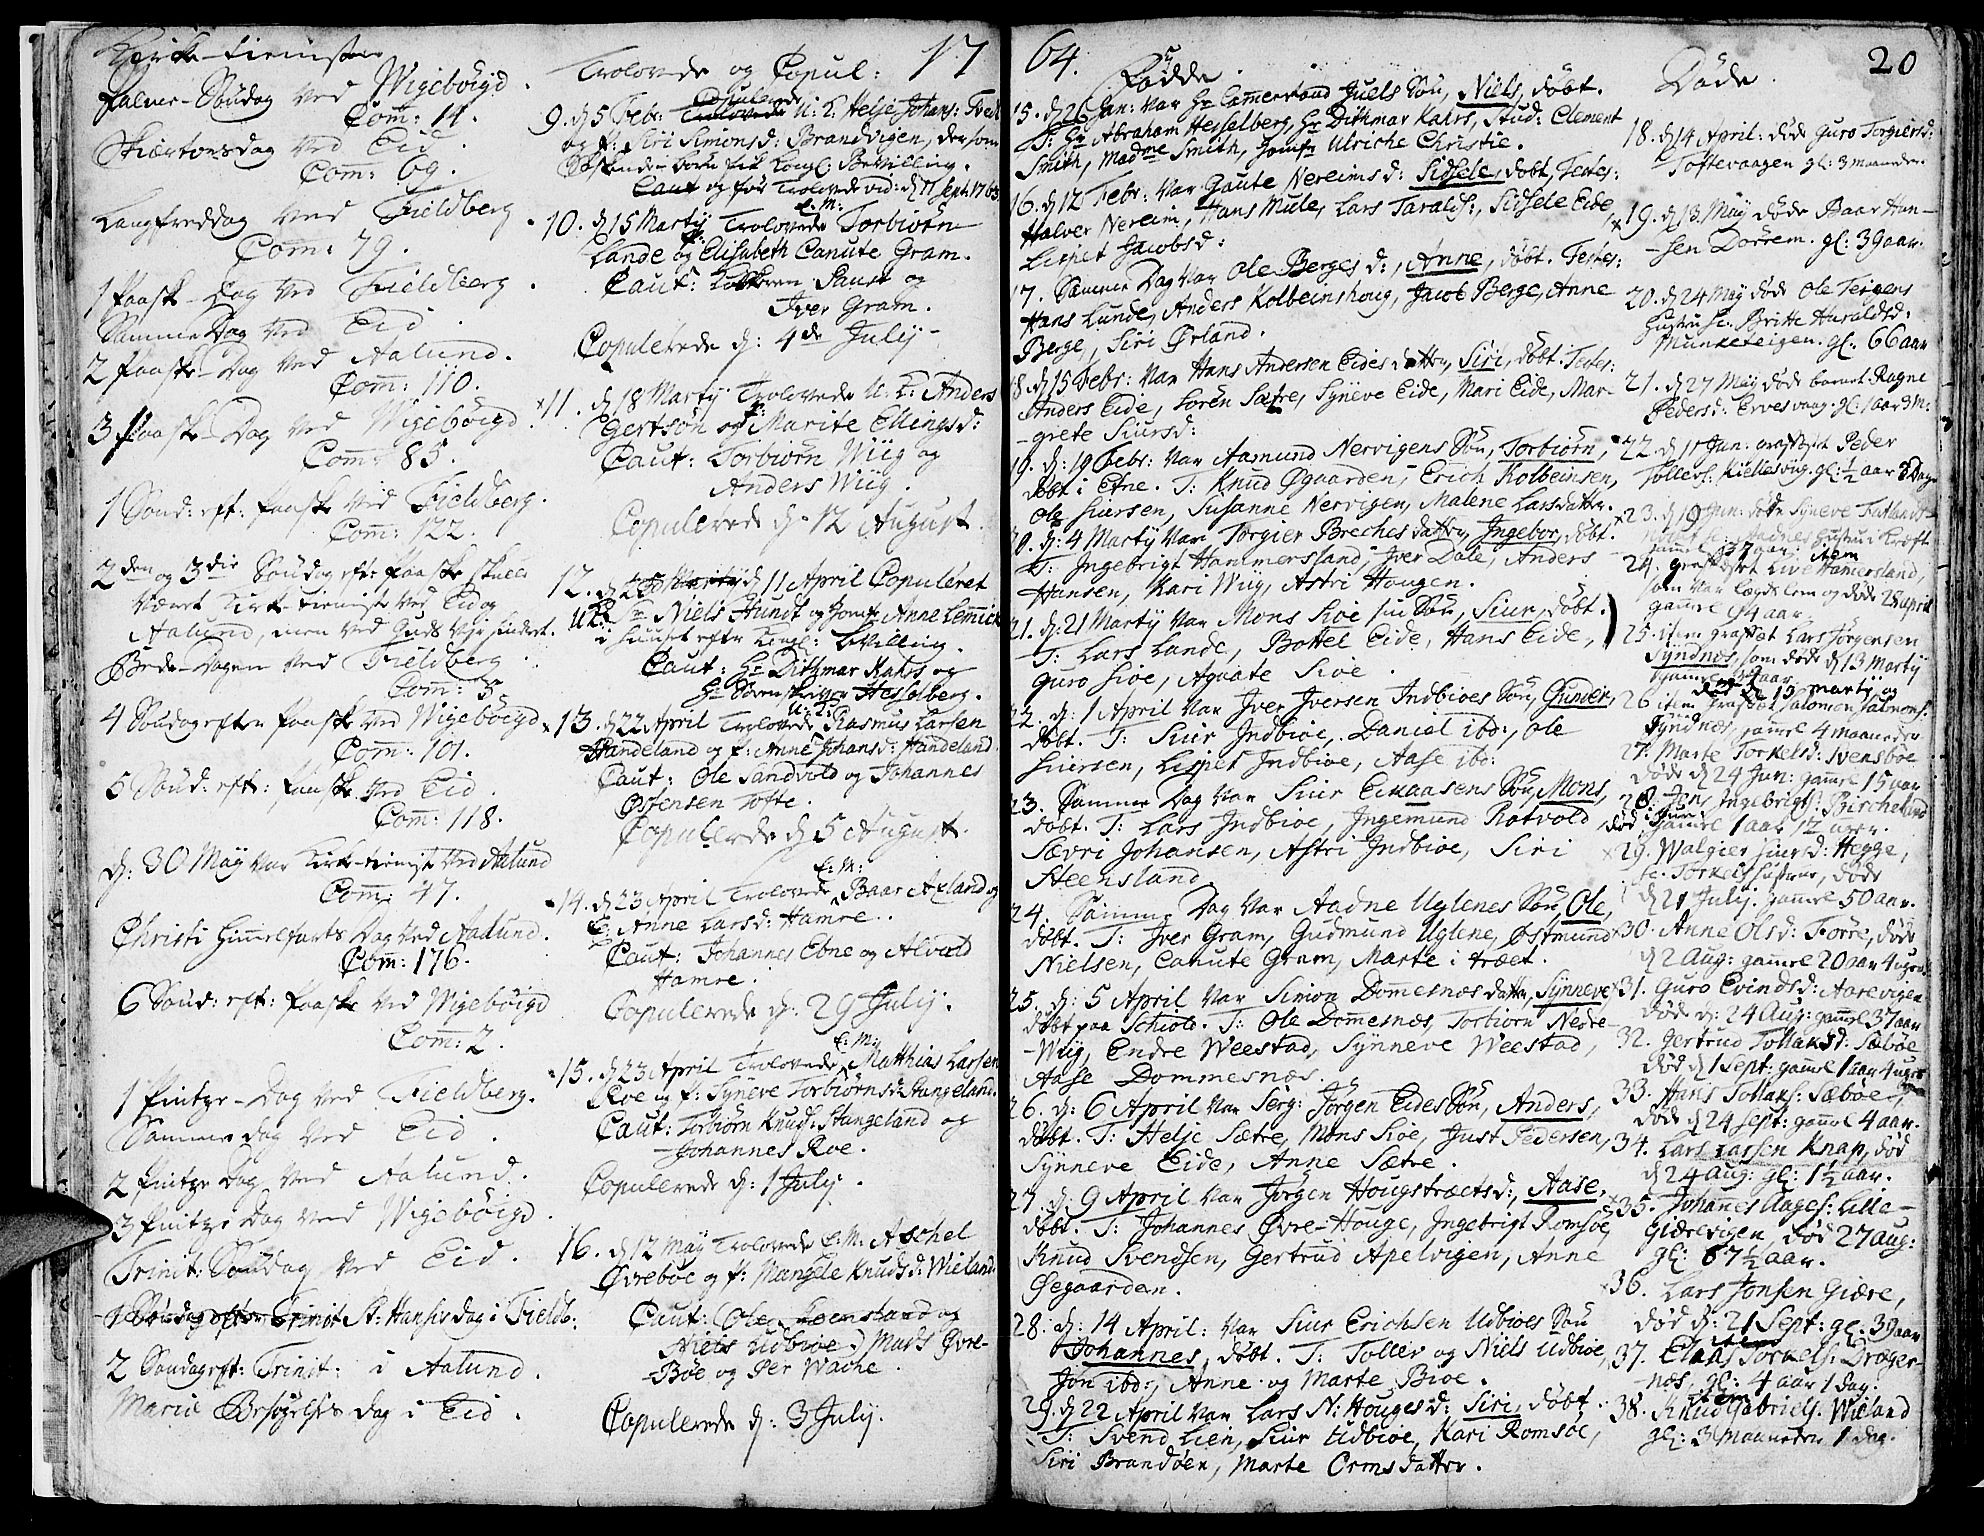 Kirke-tienister
Palme-Søndag ved Wigebøigd.
Com: 14.
Skiertorsdag ved Eid.
Com: 69.
Langfreddag ved Fieldberg.
Com: 79.
1 Paaske-Dag ved Fieldberg.
Samme Dag ved Eid.
2 Paaske-Dag ved Aalund.
Com: 110.
3 Paaske-Dag ved Wigebøigd.
Com: 85.
1 Sønd: eft: Paaske ved Fieldberg.
Com: 122.
2den og 3die Søndag eft: Paaske skulle
været Kirke-tieniste ved Eid og
Aalund, men ved Guds Vejr hindret.
Bede-Dagen ved Fieldberg
Com: 5.
4 Søndag efter Paaske ved Wigebøigd
Com: 101.
5 Sønd: eft: Paaske ved Eid.
Com: 118.
d: 30 May var Kirke-tieniste ved Aalund
Com: 47.
Christi Himmelfarts Dag ved Aalund.
Com: 176.
6 Sønd: eft: Paaske ved Wigebøigd
Com: 2.
1 Pintze-Dag ved Fieldberg.
Samme dag ved Eid.
2 Pintze Dag ved Aalund.
3 Pintze Dag ved Wigebøigd.
Trinit: Søndag ved Eid.
1 Søndag efter Trinit St: Hansis dag i Fieldb:
2 Søndag eft: Trinit: i Aalund.
Mariæ Besøgelses dag i Eid.
Trolovede og Copul: 17
9. d 5 Febr: Trolovede Copulerede U: K: Helje Johans: Tvedt
og f: Siri Simonsd: Brandvigen, der som
Søskende Børn fik Kongl: Bevilling.
Caut og før Trolovede vid: d 17 Sept. 1763
10. d 15 Marty Trolovede E: M: Torbiørn
Lande og Elisabeth Canute Gram.
Caut: Klokkeren Sanst og
Iver Gram.
Copulerede d: 4de July
11. d 18 Marty Trolovede U: K: Anders
Egertsøn og f: Marite Ellingsd:
Caut: Torbiørn Wiig og
Anders Wiig.
Copulerede d: 12 August.
12. d 25 Marty d 11 April Copuleret
U: K: Sr Niels Hundt og Jomfr Anne Lemmich
i Huuset efter Kongl: Bevilling.
Caut: Hr Dithmar Kahrs og
Hr Sørenskriver Hesselberg.
13. d 22 April Trolovede U: K: Rasmus Larsen
Handeland og f: Anne Johansd: Handeland.
Caut: Ole Sandvold og Johannes
Østensen Tofte.
Copulerede d 5 August.
14. d 23 April Trolovede E: M: Baar Axland og
E: Anne Larsd: Hamre.
Caut: Johannes Ebne og Alvald
Hamre.
Copulerede d: 29 July.
15. d 23 April Trolovede E: M: Matthias Larsen
Roe og f: Syneve Torbiørnsd: Stangeland.
Caut: Torbiørn Knuds: Stangeland og
Johannes Roe.
Copulerede d: 1 July.
16. d 12 May Trolovede E: M: Aschel
Øvrebøe og f: Mangele Knudsd: Wieland.
Caut: (Ole Leensland og
Niels Udbioe) Mads Øvre-
Bøe og Per Wache.
Copulerede d: 3 July.
64.
Fødde.
15. d 26 Jan: var Hr Camerraad Juels Søn, Niels, døbt.
T: Hr Abraham Hesselberg, Hr Dithmar Kahrs, Stud: Clement
Smith, Madme Smith, Jomfr Ulriche Christie.
16. d 12 Febr: var Gaute Nereims d: Sidsele, døbt, Testes:
Halver Nereim, Hans Mule, Lars Taralds:, Sidsele Eide,
Lispet Jacobsd:
17. Samme Dag var Ole Berges d:, Anne, døbt. Testes:
Hans Lunde, Anders Kolbeinshoug, Jacob Berge, Anne
Berge, Siri Ørland.
18. d 15 Febr: var Hans Andersen Eides datter, Siri, døbt. Testes:
Anders Eide, Søren Sætre, Syneve Eide, Mari Eide, Mar-
grete Siursd:
19. d: 19 Febr: var Aamund Nervigens Søn, Torbiørn,
døbt i Etne. T: Knud Øgaarden, Erich Kolbeinsen,
Ole Siursen, Susanne Nervigen, Malene Larsdatter.
20. d: 4 Marty var Torgier Breches datter, Ingebor, døbt.
T: Ingebrigt Hammersland, Iver Dale, Anders
Hansen, Kari Wiig, Astri Hougen.
21. d: 21 Marty var Mons Sioe sin Søn, Siur, døbt.
T: Lars Lande, Bottel Eide, Hans Eide,
Guro Sioe, Agaate Sioe.
22. d: 1 April var Iver Iversen Indbioes Søn, Gunder,
døbt. T: Siur Indbioe, Daniel ibd:, Ole
Siursen, Lispet Indbioe, Aase ibd:
23. Samme Dag var Siur Claasens Søn, Mons,
døbt. T: Lars Indbioe, Ingemund Rotvold,
Sævri Johansen, Astri Indbioe, Siri
Steensland.
24. Samme Dag var Aadne Uglenes Søn, Ole,
døbt. T: Iver Gram, Gudmund Uglene, Østmund
Nielsen, Canute Gram, Marte i træet.
25. d: 5 April var Simon Dommesnæs datter, Synneve
døbt paa Schiold. T: Ole Dommesnæs, Torbiørn Nedre-
Wiig, Endre Weestad, Synneve Weestad,
Aase Dommesnæs.
26. d: 6 April var Serg: Jørgen Eides Søn, Anders,
døbt. T: Helje Sætre, Mons Sioe, Just Pedersen,
Synneve Eide, Anne Sætre.
27. d: 9 April var Jørgen Hougstræets d:, Aase,
døbt. T: Johannes Øvre-Houge, Ingebrigt Romsøe,
Knud Svendsen, Gertrud Apelvigen, Anne
Øegaarden.
28. d: 14 April: var Siur Erichsen Udbioes Søn
Johannes, døbt. T: Toller og Niels Udbioe,
Jon ibd:, Anne og Marte Bioe.
29. d 22 April var Lars N: Houges d: Siri, døbt.
T: Svend Lien, Siur Udbioe, Kari Romsøe,
Siri Brandøen, Marte Ormsdatter.
Døde. 20
18. d 14 April: døde Guro Torgiersd:
Toftevaagen gl: 3 maaneder.
19. d 13 May døde Baar Han-
sen Dørrem. gl: 39 aar.
20. d 24 May døde Ole Terjens
Hustrue. Britte Haraldsd:
Munketeigen. gl: 66 aar
21. d 27 May døde barnet Ragne
Pedersd: Ervesvaag. gl: 1 aar 3 M:
22. d 11 Jun: grafæstet Peder
Tollers: Kiellesvig. gl: 1/2 aar 8 Dage
23. d 19 Jun: døde Syneve Fatlands-
gamel 37 aar.
24. grafæstet item Live Hamersland,
som var Lægds lem og døde 28 april
gamel 94 aar.
25. item grafæstet Lars Jørgensen
Syndnes, som døde d 13 Marty
26 item grafæstet Salomon Salomons:
død d 15 marty og
Syndnæs, gamel 4 maaneder
27. Marte Torkelsd: Svensbøe
døde d 24 Jun: gamel 15 aar
28. Jens Ingebrigts: Bircheland
død i Jun: gamel 1 aar 12 uger.
29. Walgier Siursd: Hegge,
Torkels hustrue, døde
d 21 July. gamel 50 aar.
30. Anne Olsd: Førre, døde
d 2 Aug: gamel 20 aar 4 uger.
31. Guro Evindsd: Aarevigen
døde d: 24 Aug: gamel 37 aar
32. Gertrud Tollaksd: Sæbøe
død d 1 Sept: gamel 1 aar 4 uger
33. Hans Tollaks: Sæbøe,
døde d 24 Sept: gamel 4 aar.
34. Lars Larsen Knap, død
d 24 Aug: gl: 1 1/2 aar.
35. Johannes Aages: Lille-
Giærevigen, død 27 Aug:
gl: 67 1/2 aar.
36. Lars Jonsen Giære,
død d: 21 Sept: gl: 39 aar
37. item Claas Torkels: Drøger-
næs, gl: 4 aar 1 dag.
38. item Knud Gabriels: Wieland
gl: 3 Maaneder 1 dag.